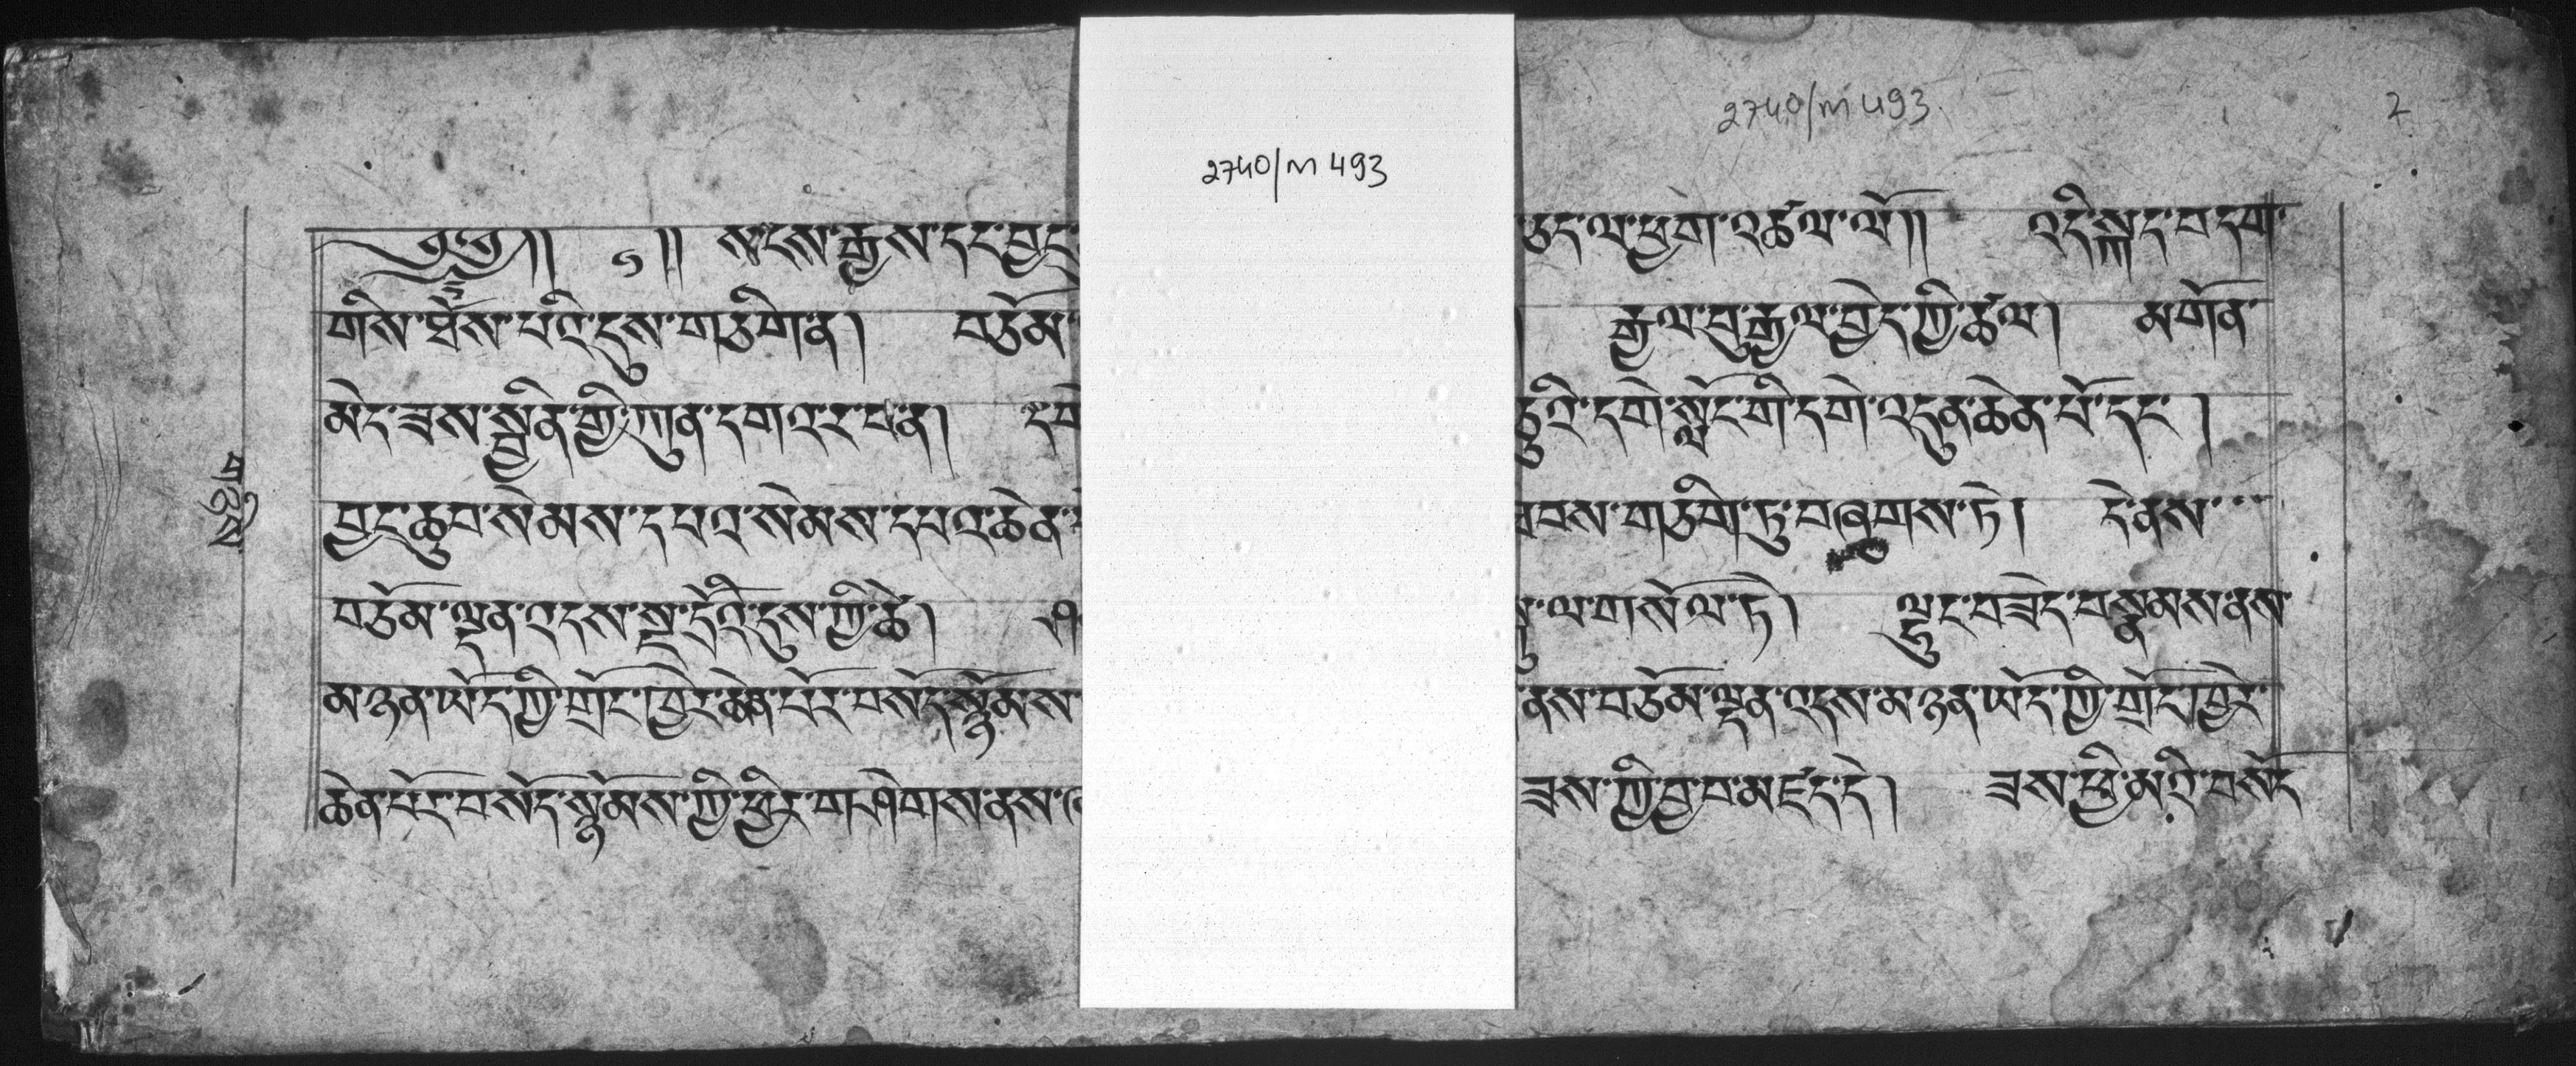 2740/m 493
2740/m 493
2
༄༅།། ༡ །། སངས་རྒྱས་དང་བྱང་ ཐད་ལ་ཕྱག་འཚལ་ལོ།། འདི་སྐད་བདག་
གིས་ཐོས་པའི་དུས་གཅིག་ན། བཅོམ་ རྒྱལ་བུ་རྒྱལ་བྱེད་ཀྱི་ཚལ། མགོན་
མེད་ཟས་སྦྱིན་གྱི་ཀུན་དགའ་ར་བ་ན། དགེ་སློང་གི་དགེ་འདུན་ཆེན་པོ་དང་།
བྱང་ཆུབ་སེམས་དཔའ་སེམས་དཔའ་ཆེན་ ཐབས་གཅིག་ཏུ་བཞུགས་ཏེ། དེ་ནས་
བཅོམ་ལྡན་འདས་སྔ་དྲོའི་དུས་ཀྱི་ཚེ། ལ་གསོལ་ཏེ། ལྷུང་བཟེད་བསྣམས་ནས་
མཉན་ཡོད་ཀྱི་གྲོང་ཁྱེར་ཆེན་པོར་བསོད་སྙོམས་ ནས་བཅོམ་ལྡན་འདས་མཉན་ཡོད་ཀྱི་གྲོང་ཁྱེར་
ཆེན་པོར་བསོད་སྙོམས་ཀྱི་ཕྱིར་གཤེགས་ནས་ ཟས་ཀྱི་བྱ་བ་མཛད་དེ། ཟས་ཕྱི་མའི་བསོད